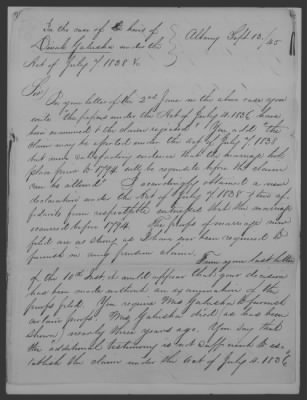 In the case of the heirs of
Dinah Galusha under the
Act of July 7 1838 &c
Albany Sept 13/45
Sir,
In your letter of the 2nd June in the above case you
write "the papers under the Act of July 4. 1836, have
been examined & the claim rejected" You add "the
claim may be asserted under the act of July 7. 1838
but more satisfactory evidence that the marriage took
place prior to 1794. will be requisite before the claim
can be allowed" I accordingly obtained a new
declaration under the Act of July 7 1838 & two af-
fidavits from respectable witnesses that the marriage
occurred before 1794. The proofs of marriage now
filed are as strong as I have ever been required to
furnish in any pension claim. From your last letter
of the 10th Inst, it would appear that your decision
has been made without an examination of the
proofs filed. You require Mrs Galusha to furnish
certain proofs. Mrs Galusha died (as has been
shown) nearly three years ago. You say that
the additional testimony is not sufficient to es-
tablish the claim under the Act of July 4. 1836